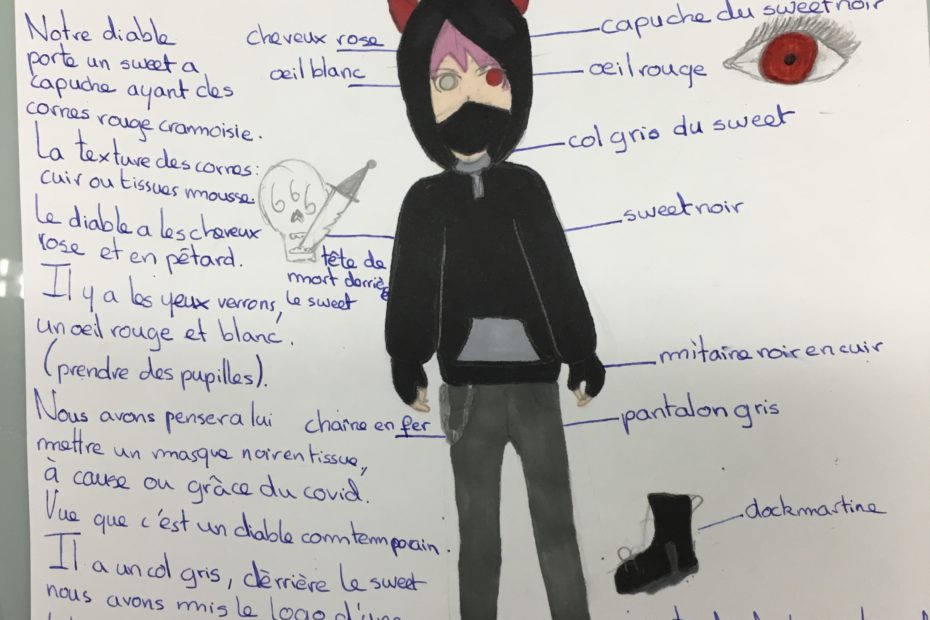 Notre diable
porte un sweet a
capuche ayant des
cornes rouge cramoisie.
La texture des cornes:
cuir ou tissues mousse.
Le diable a les cheveux
rose et en pétard.
Il y a les yeux verrons,
un oeil rouge et blanc.
(prendre des pupilles).
Nous avons penser a lui
mettre un masque noir en tissue,
à cause ou grâce du covid.
Vue que c'est un diable comtemporain.
Il a un col gris, dèrrière le sweet
nous avons mis le logo d'une
cheveux rose
oeil blanc
666
tête de
mort derrière
le sweet
chaine en fer
capuche du sweet noir
oeil rouge
col gris du sweet
sweet noir
mitaine noir en cuir
pantalon gris
dockmartine